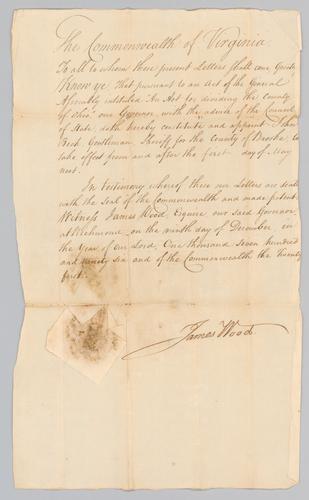 The Commonwealth of Virginia
To all to whom these present Letters shall come Greeting
Know ye, That pursuant to an Act of the General
Assembly intituled An Act for dividing the County
of Ohio, our Governor, with the advice of the Council
of State, doth hereby constitute and appoint
Beck Gentleman, Sheriff for the County of Brooke to
take effect from and after the first day of May
next.
In testimony whereof these our Letters are sealed
with the Seal of the Commonwealth and made patent.
Witness James Wood Esquire our said Governor
at Richmond, on the ninth day of December, in
the Year of our Lord, One thousand Seven hundred
and ninety six and of the Commonwealth the Twenty
first.
James Wood